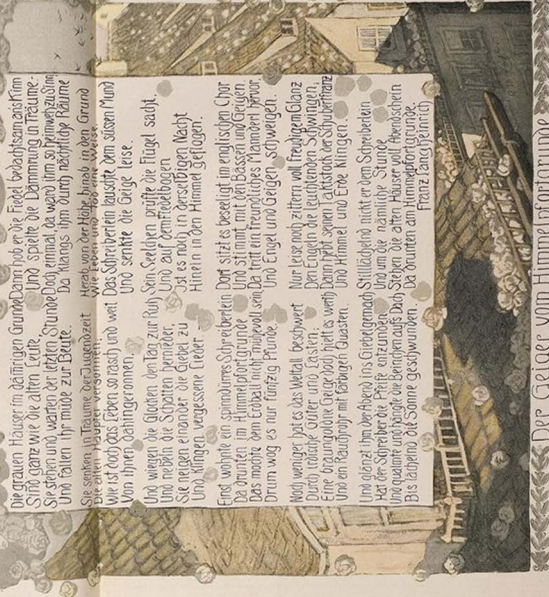 Der Geiger vom Himmelpfortgrunde.
Die grauen Häuser im dämmrigen Grunde
Sind ganz wie die alten Leute,
Sie stehen und warten der letzten Stunde
Und fallen ihr müde zur Beute.
Sie senken in Träume der Jugendzeit
Die alten Häupter versonnen:
Wie ist doch das Leben so rasch und weit
Von ihnen dahingeronnen
Und wiegen die Glocken den Tag zur Ruh
Und nebeln die Schatten hernieder,
Sie neigen einander die Giebel zu
Und klingen vergessene Lieder
Einst wohnte ein spindürres Schreiberlein
Da drunten im Himmelpfortgrunde
Das mochte dem Erdball nicht mühevoll sein
Drum wog es nur fünfzig Pfunde.
Noch weniger hat es das Weltall beschwert
Durch irdische Güter und Lasten:
Eine braungoldne Geige bloß hielt es wert
Und ein Rauchrohr mit farbigen Quasten.
Und glänzt ihm der Abend ins Giebelgemach
Hat der Schreiber die Pfeife entzunden
Und qualmte und bangte die Berichen aufs Dach
Bis lächelnd die Sonne geschwunden.
Dann hob er die Fiedel bedachtsam ans Kinn
Und spielte die Dämmrung in Träume:
Doch einmal, da wand ihm so heimweh zu Sinn
Da klangs ihm durch nächtliche Räume
Herab von der Höhe, hinab in den Grund
Wie Leben und Tod eine Weise
Das Schreiberlein lauschte dem süssen Mund
Und senkte die Geige leise.
Sein Seelchen prüfte die Flügel sacht
Und auf dem Fiedelbogen
Ist es noch in derselbigen Nacht
Hinein in den Himmel geflogen.
Dort sitzt es beseligt im englischen Chor
Und stimmt mit den Bässen und Geigen
Da tritt ein freundliches Männderl hervor
Und Engel und Geigen schweigen.
Nur leise noch zittern voll freudigem Glanz
Den Engeln die leuchtenden Schwingen,
Dann hebt seinen Taktstock der Schubertfranz
Und Himmel und Erde klingen.
Still lächelnd nickt er dem Schreiberlein
Und um die nämliche Stunde
Stehen die alten Häuser voll Abendschein
Da drunten am Himmelpfortgrunde.
Franz Langheinrich